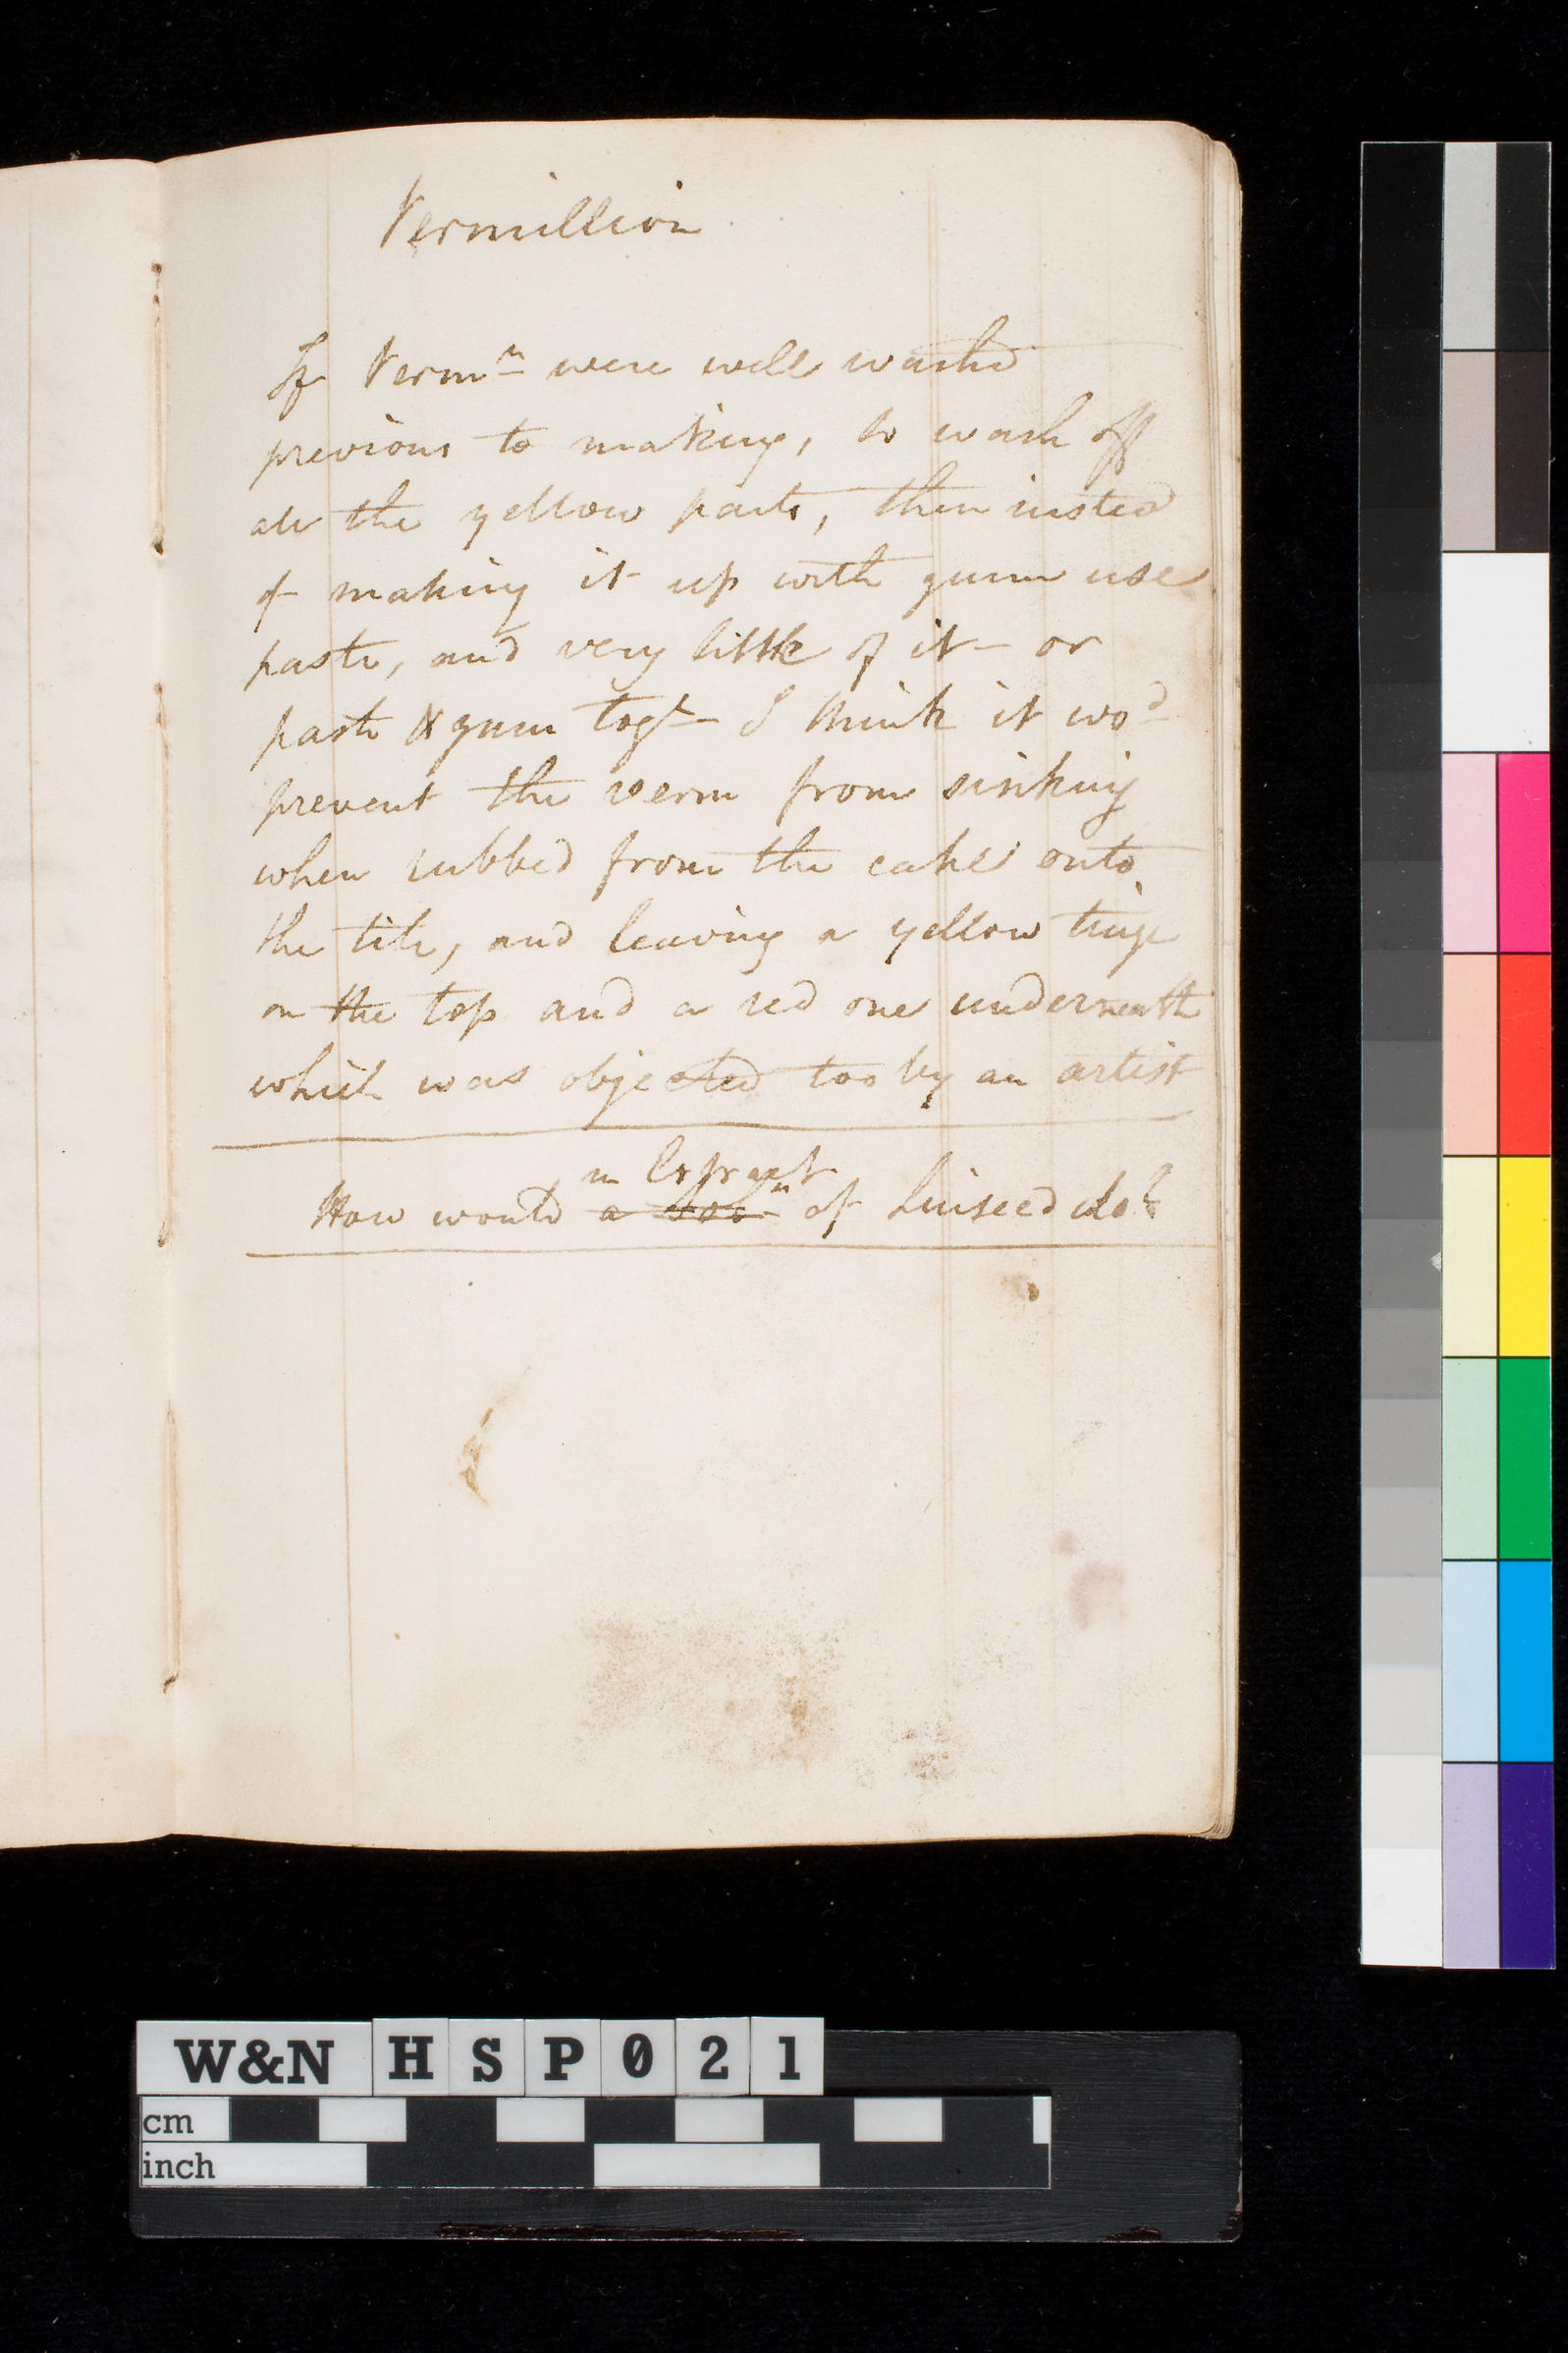 Vermillion
If Verm^n were well washd
previous to making, to wash off
all the yellow parts, then insted
of making it up with gum use
paste, and very little of it – or
paste & gum tog^t – I think it wo^d
prevent the verm from sinking
when rubbed from the cake onto
the tile, and leaving a yellow tinge
on the top and a red one underneath
which was objected too by an artist
an Extract
How would ~~a Sol^n~~ of Linseed do?
W&N HSP021
cm
inch